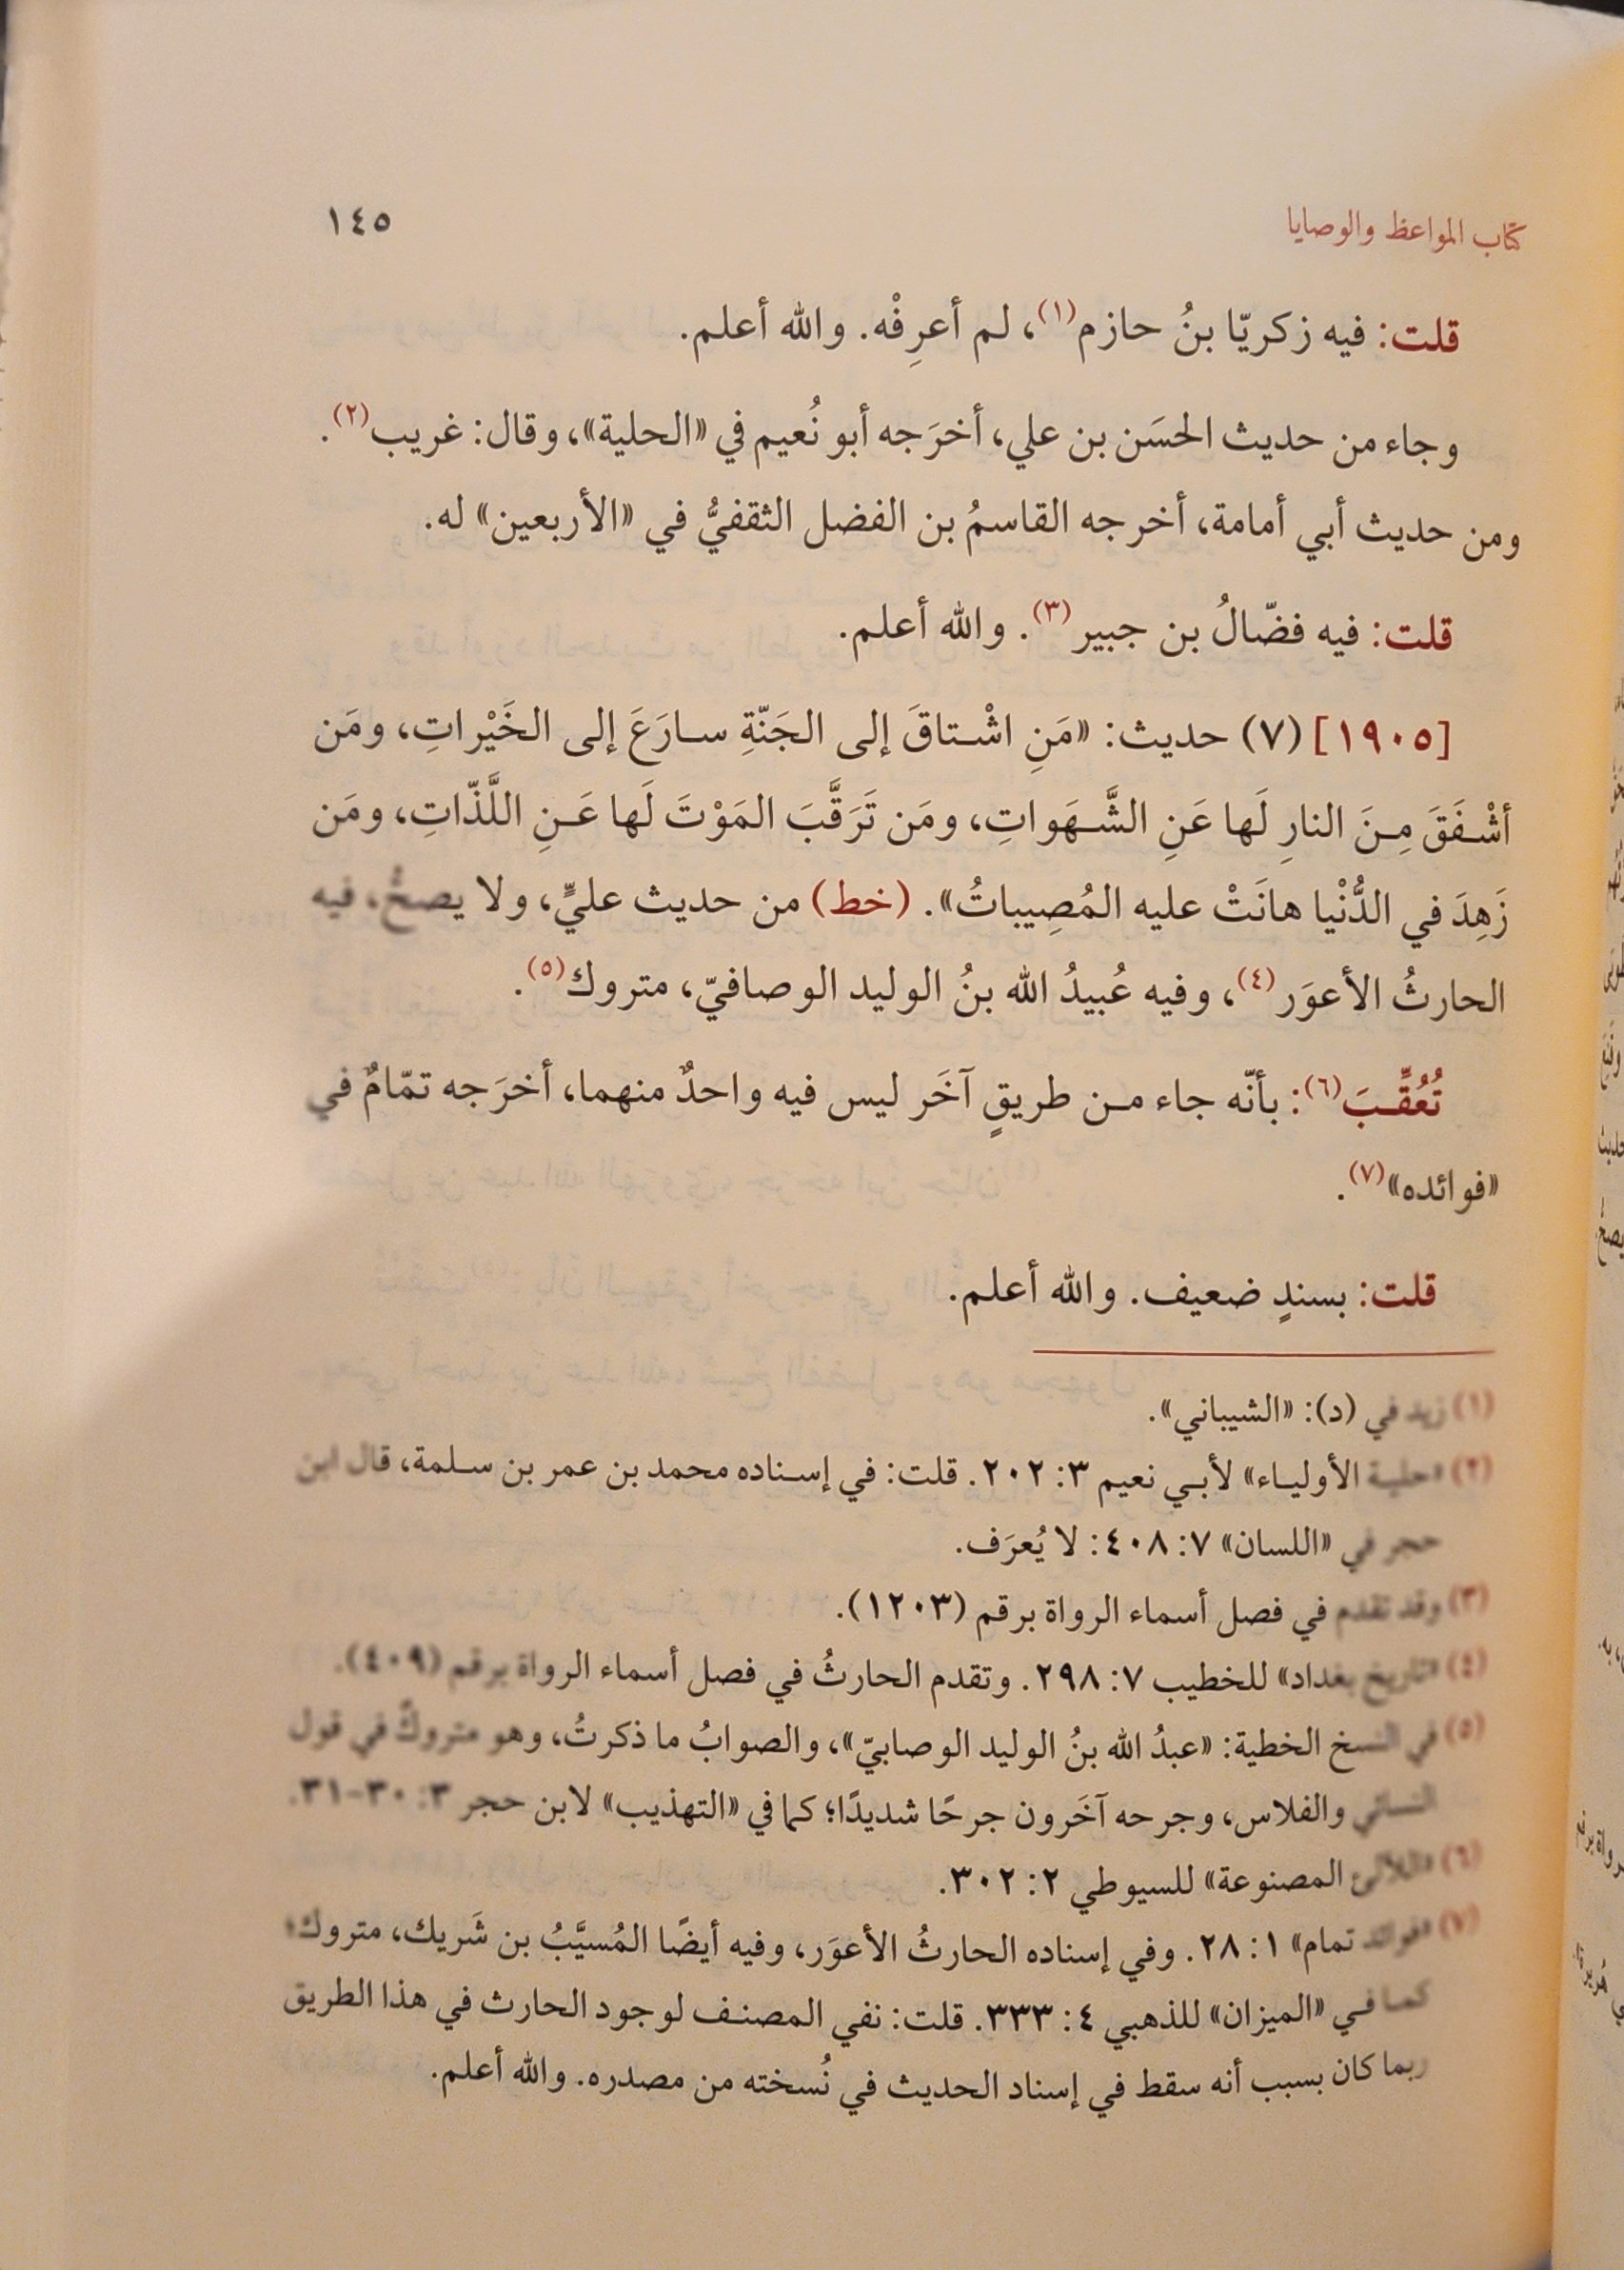 كتاب المواعظ والوصايا ١٤٥
قلت: فيه زكريّا بنُ حازم(١)، لم أعرِفْه. والله أعلم.
وجاء من حديث الحسَن بن علي، أخرَجه أبو نُعيم في «الحلية»، وقال: غريب(٢).
ومن حديث أبي أمامة، أخرجه القاسمُ بن الفضل الثقفيُّ في «الأربعين» له.
قلت: فيه فضّالُ بن جبير(٣). والله أعلم.
[١٩٠٥] (٧) حديث: «مَنِ اشْتاقَ إلى الجَنّةِ سارَعَ إلى الخَيْراتِ، ومَن
أشْفَقَ مِنَ النارِ لَها عَنِ الشَّهَواتِ، ومَن تَرَقَّبَ المَوْتَ لَها عَنِ اللَّذّاتِ، ومَن
زَهِدَ في الدُّنْيا هانَتْ عليه المُصِيباتُ». (خط) من حديث عليٍّ، ولا يصحُّ، فيه
الحارثُ الأعوَر(٤)، وفيه عُبيدُ الله بنُ الوليد الوصافيّ، متروك(٥).
تُعُقِّبَ(٦): بأنّه جاء من طريقٍ آخَر ليس فيه واحدٌ منهما، أخرَجه تمّامٌ في
«فوائده»(٧).
قلت: بسندٍ ضعيف. والله أعلم.
(١) زيد في (د): «الشيباني».
(٢) «حلية الأولياء» لأبي نعيم ٣: ٢٠٢. قلت: في إسناده محمد بن عمر بن سلمة، قال ابن
حجر في «اللسان» ٧: ٤٠٨: لا يُعرَف.
(٣) وقد تقدم في فصل أسماء الرواة برقم (١٢٠٣).
(٤) «تاريخ بغداد» للخطيب ٧: ٢٩٨. وتقدم الحارثُ في فصل أسماء الرواة برقم (٤٠٩).
(٥) في النسخ الخطية: «عبدُ الله بنُ الوليد الوصابيّ»، والصوابُ ما ذكرتُ، وهو متروكٌ في قول
النسائي والفلاس، وجرحه آخَرون جرحًا شديدًا؛ كما في «التهذيب» لابن حجر ٣: ٣٠-٣١.
(٦) «اللآلئ المصنوعة» للسيوطي ٢: ٣٠٢.
(٧) «فوائد تمام» ١: ٢٨. وفي إسناده الحارثُ الأعوَر، وفيه أيضًا المُسيَّبُ بن شَريك، متروك؛
كما في «الميزان» للذهبي ٤: ٣٣٣. قلت: نفي المصنف لوجود الحارث في هذا الطريق
ربما كان بسبب أنه سقط في إسناد الحديث في نُسخته من مصدره. والله أعلم.